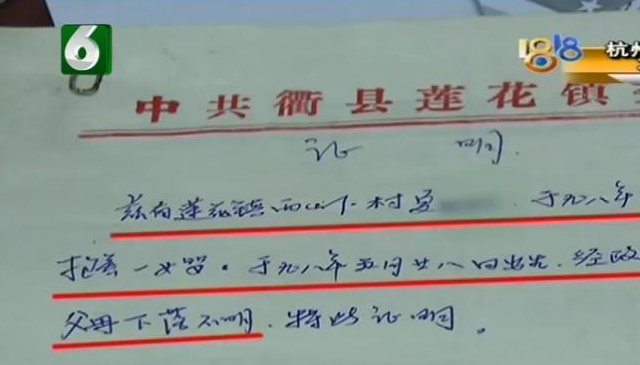 6
1818
杭州
中共衢县莲花镇
证 明
兹有莲花镇西山下村 于九八年
抱养一女婴。于九八年五月廿八日出生.经政
父母下落不明.特此证明。